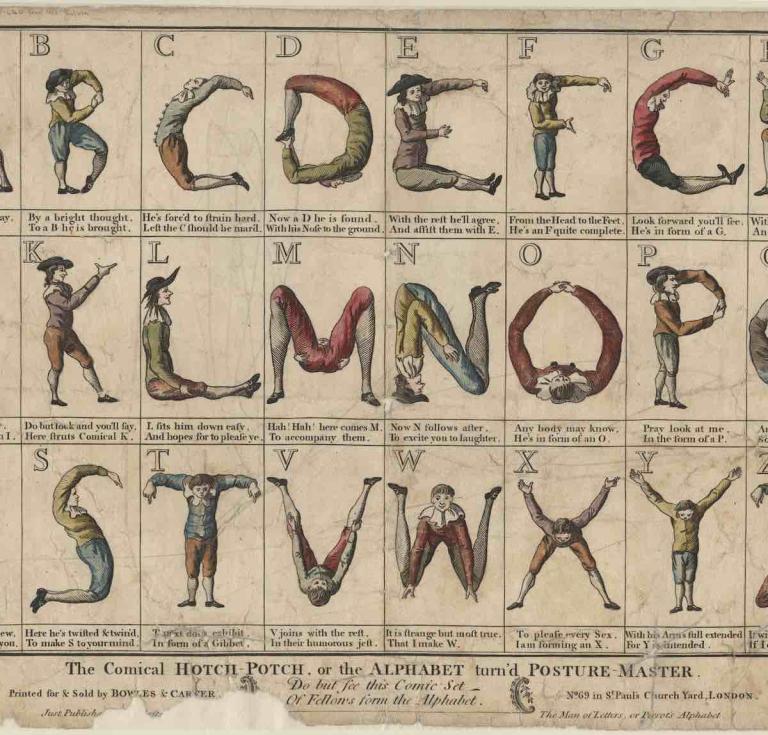 B
C
D
E
F
G
ay.
By a bright thought.
To a B he is brought.
He's forc'd to ſtrain hard.
Leſt the C ſhould be mard.
Now a D he is found.
With his Noſe to the ground.
With the reſt he'll agree,
And aſſiſt them with E.
From the Head to the Feet,
He's an F quite complete.
Look forward you'll ſee,
He's in form of a G.
Wit
An
K
L
M
N
O
P
n I.
Do but look and you'll ſay,
Here ſtruts Comical K.
L ſits him down eaſy,
And hopes for to pleaſe ye.
Hah! Hah! here comes M.
To accompany them.
Now N follows after,
To excite you to laughter.
Any body may know,
He's in form of an O.
Pray look at me,
In the form of a P.
S
T
V
W
X
Y
Z
ew.
you.
Here he's twiſted & twin'd,
To make S to your mind.
exhibit
In form of a Gibbet.
V joins with the reſt,
In their humorous jeſt.
It is ſtrange but moſt true,
That I make W.
To pleaſe every Sex,
I am forming an X.
With his Arms full extended
For Y is intended.
The Comical HOTCH-POTCH, or the ALPHABET turn'd POSTURE-MASTER.
Printed for & Sold by BOWLES & CARVER.
Do but ſee this Comic Set
Of Fellows form the Alphabet.
Nº 69 in St. Pauls Church Yard, LONDON.
Just Publish
The Man of Letters, or Pierrot's Alphabet